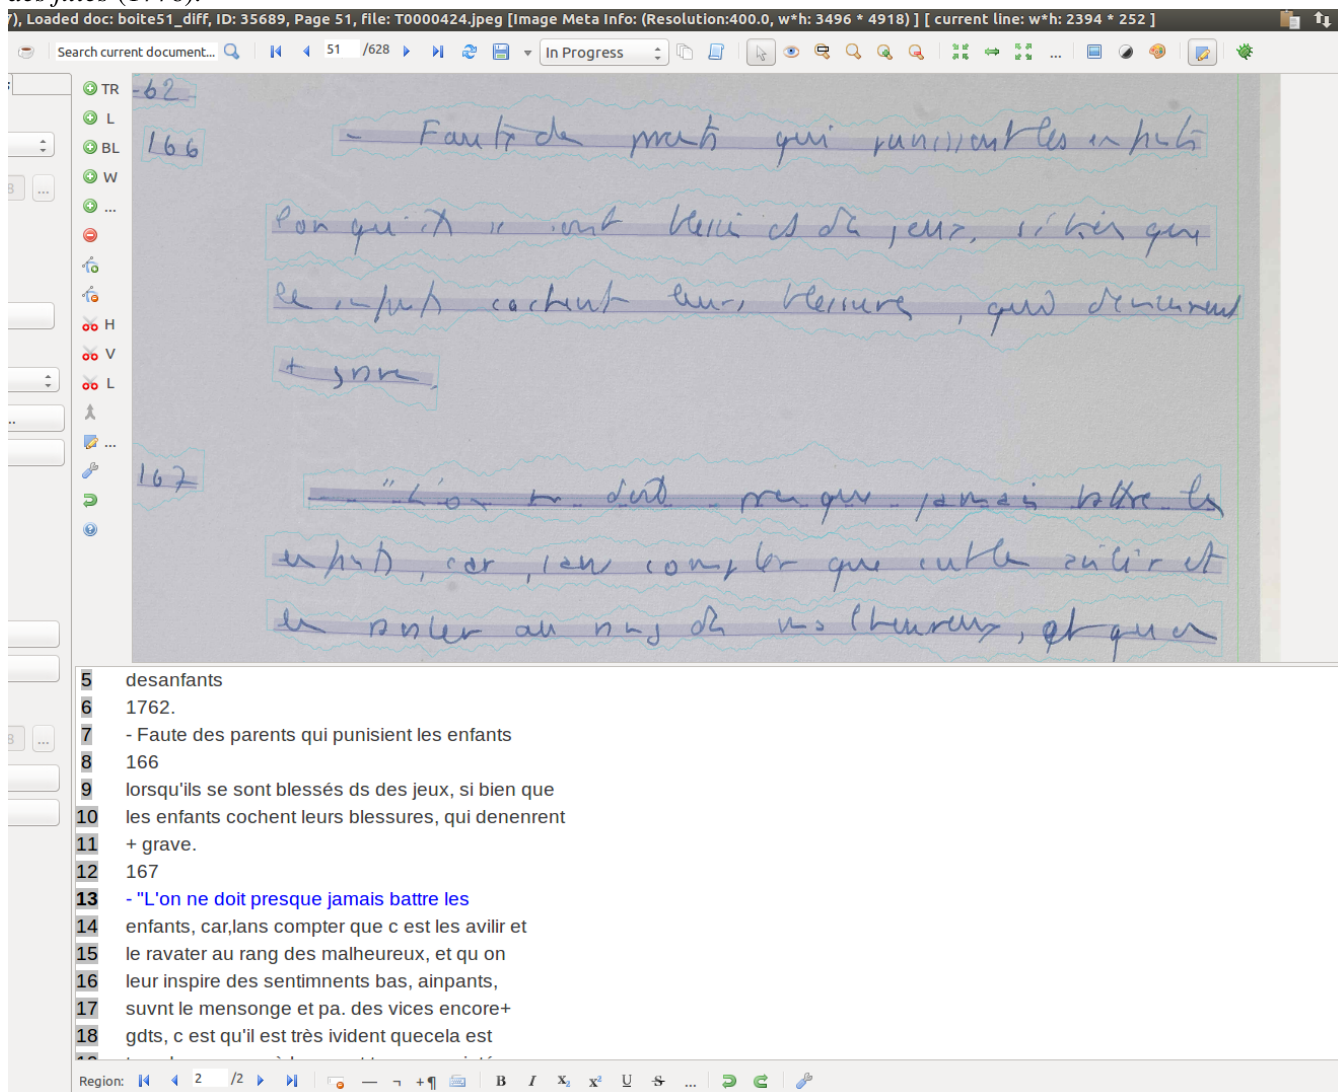 des filles (1776).
7), Loaded doc: boite51_diff, ID: 35689, Page 51, file: T0000424.jpeg [Image Meta Info: (Resolution:400.0, w*h: 3496 * 4918) ] [ current line: w*h: 2394 * 252 ]
Search current document... 51 /628 In Progress ...
TR
L
BL
W
...
H
V
L
...
-62
166 - Faute de parents qui punissent les enfants
lorsqu'ils se sont blessés ds des jeux, si bien que
les enfants cachent leurs blessures, qui demeurent
+ grave.
167 - "L'on ne doit presque jamais battre les
enfants, car, sans compter que c'est les avilir et
les ravaler au rang des malheureux, et qu'on
5 desanfants
6 1762.
7 - Faute des parents qui punisient les enfants
8 166
9 lorsqu'ils se sont blessés ds des jeux, si bien que
10 les enfants cochent leurs blessures, qui denenrent
11 + grave.
12 167
13 - "L'on ne doit presque jamais battre les
14 enfants, car,lans compter que c est les avilir et
15 le ravater au rang des malheureux, et qu on
16 leur inspire des sentimnents bas, ainpants,
17 suvnt le mensonge et pa. des vices encore+
18 gdts, c est qu'il est très ivident quecela est
Region: 2 /2 B I X₂ X² U S ...